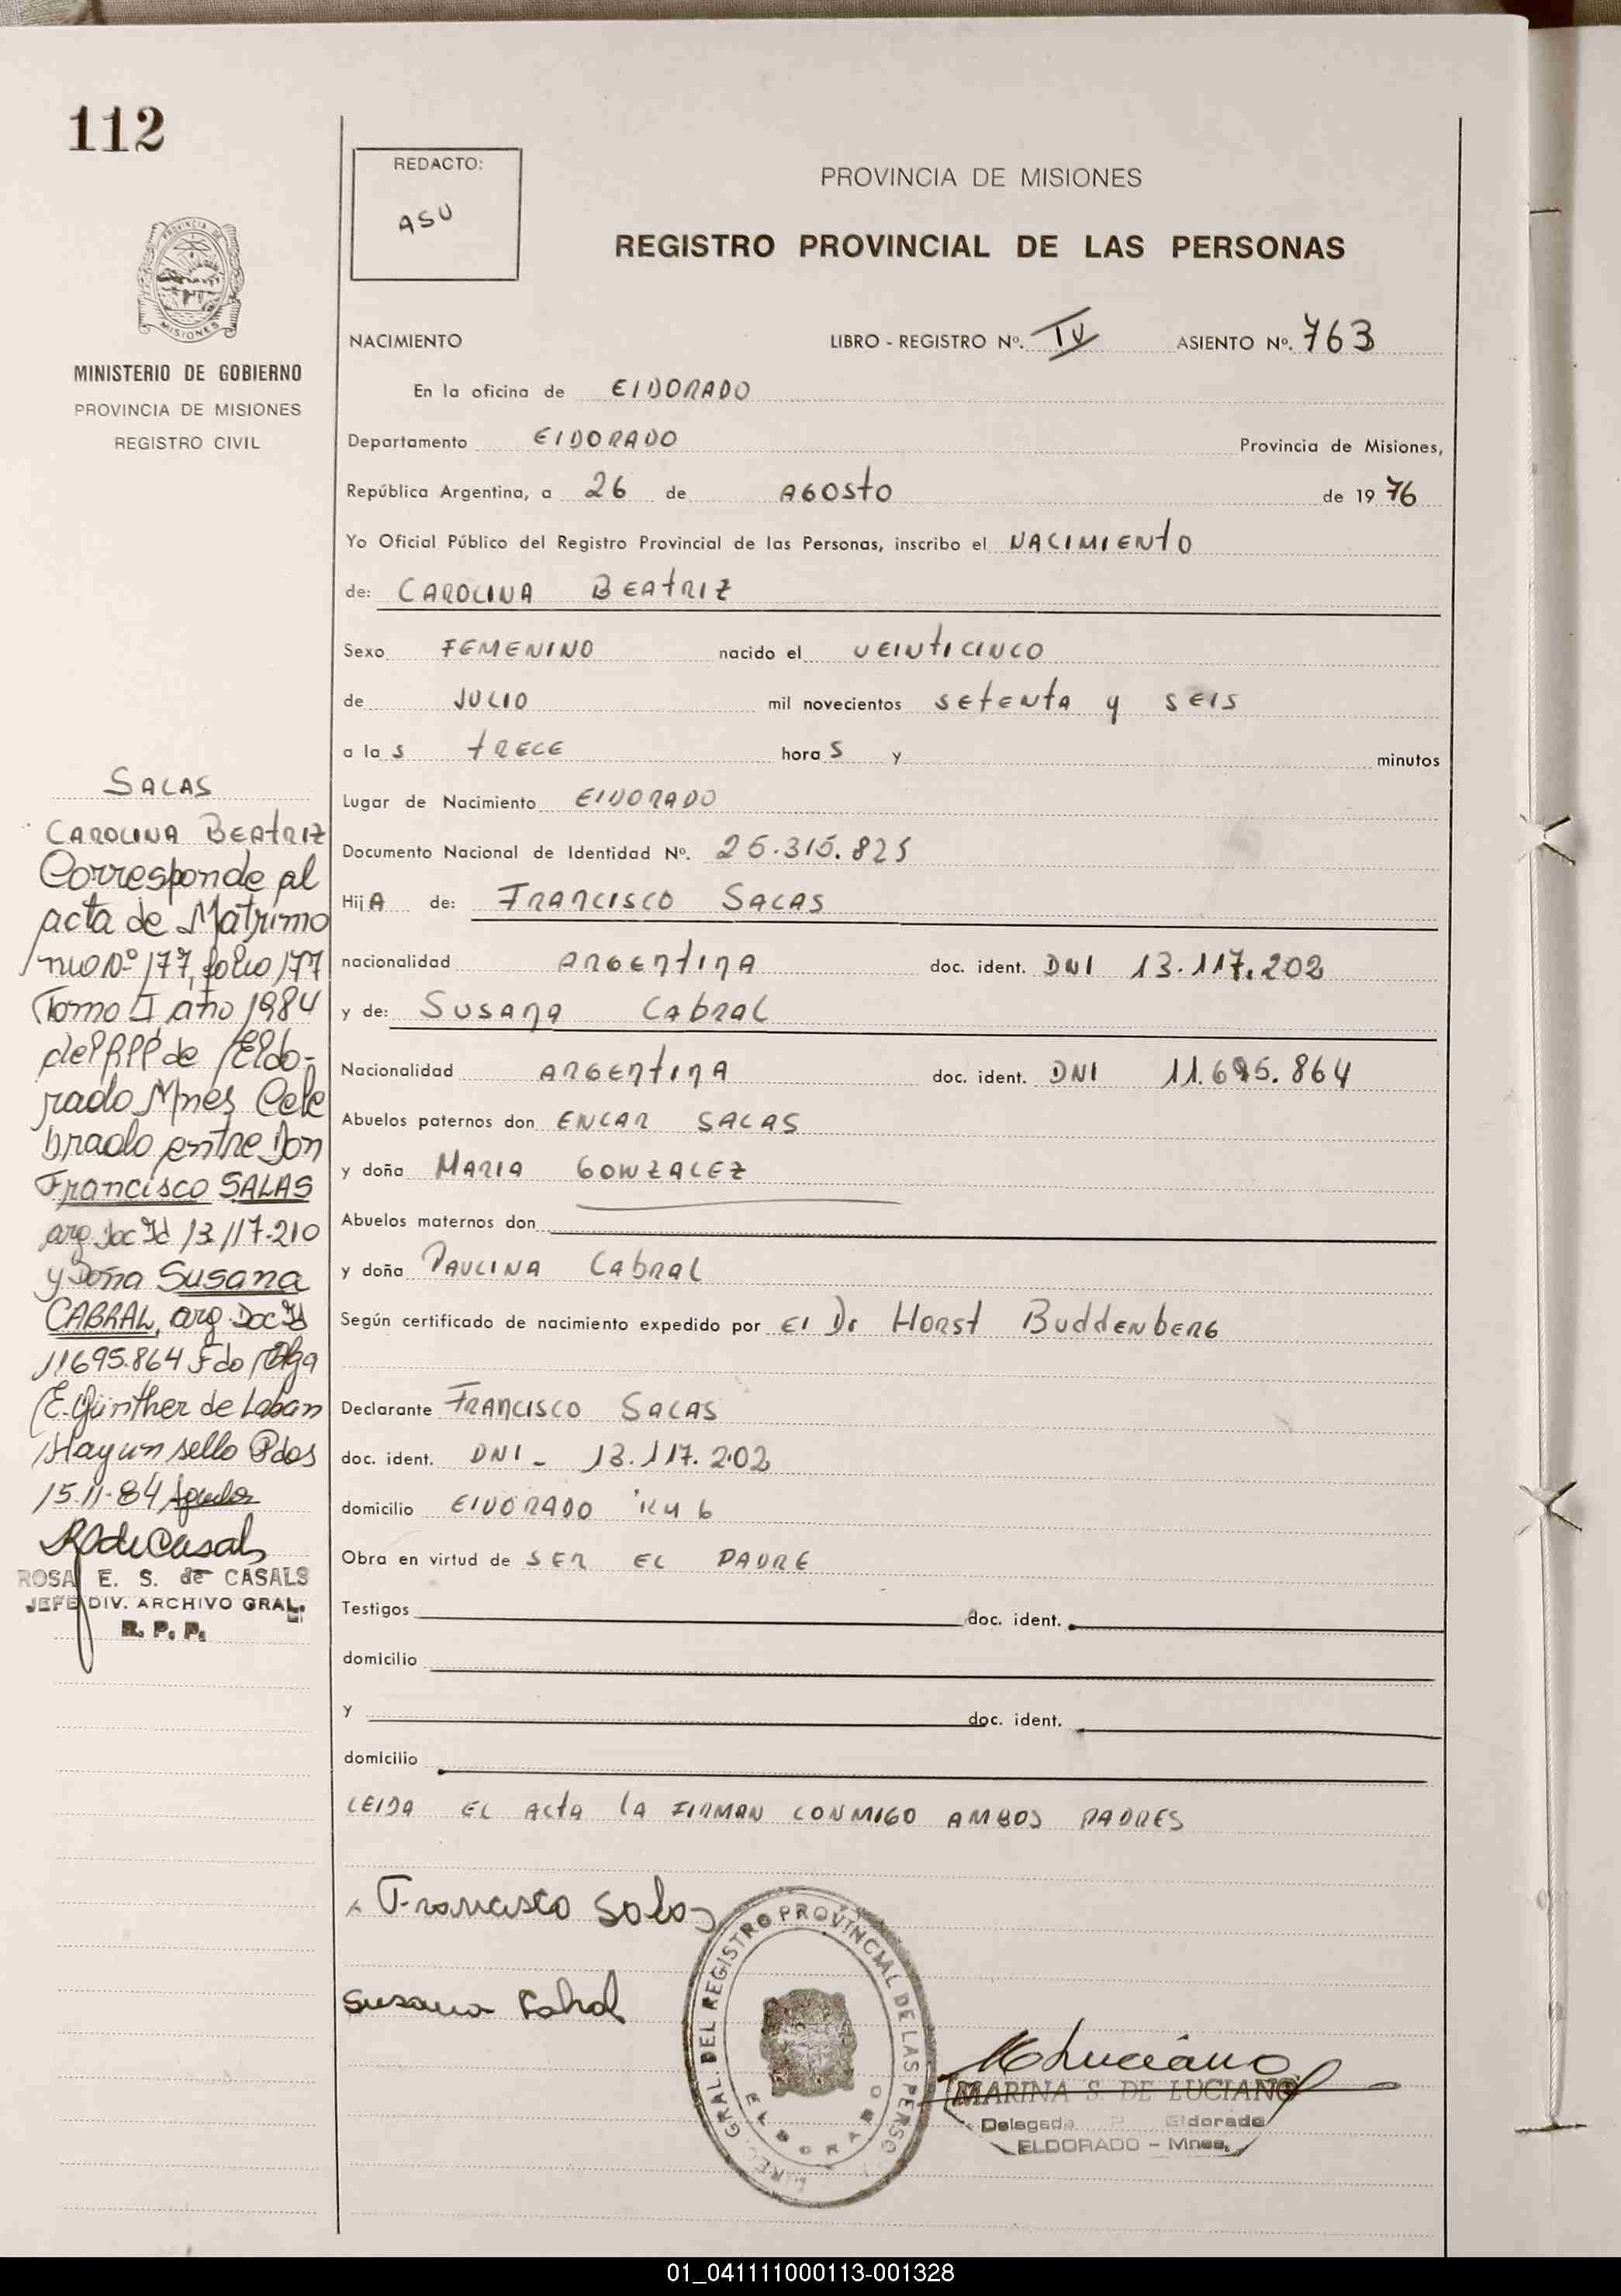 112
PROVINCIA DE
MISIONES
MINISTERIO DE GOBIERNO
PROVINCIA DE MISIONES
REGISTRO CIVIL
REDACTO:
ASU
PROVINCIA DE MISIONES
REGISTRO PROVINCIAL DE LAS PERSONAS
NACIMIENTO LIBRO - REGISTRO Nº. IV ASIENTO Nº. 763
En la oficina de ElDORADO
Departamento ElDORADO Provincia de Misiones,
República Argentina, a 26 de AGOSTO de 1976
Yo Oficial Público del Registro Provincial de las Personas, inscribo el NACIMIENTO
de: CAROLINA BEATRIZ
Sexo FEMENINO nacido el VEINTICINCO
de JULIO mil novecientos SETENTA y SEIS
a las TRECE horas y minutos
Lugar de Nacimiento ElDORADO
Documento Nacional de Identidad Nº. 25.315.825
HijA de: FRANCISCO SALAS
nacionalidad ARGENTINA doc. ident. DNI 13.117.202
y de: SUSANA CABRAL
Nacionalidad ARGENTINA doc. ident. DNI 11.695.864
Abuelos paternos don ENCAR SALAS
y doña MARIA GONZALEZ
Abuelos maternos don
y doña PAULINA CABRAL
Según certificado de nacimiento expedido por El Dr HORST BUDDENBERG
Declarante FRANCISCO SALAS
doc. ident. DNI - 13.117.202
domicilio ElDORADO KM 6
Obra en virtud de SER EL PADRE
Testigos doc. ident.
domicilio
y doc. ident.
domicilio
LEIDA EL ACTA LA FIRMAN CONMIGO AMBOS PADRES
Francisco Salas
Susana Cabral
DIREC. GRAL. DEL REGISTRO PROVINCIAL DE LAS PERSO
ELDORADO
MARINA S. DE LUCIANO
Delegada P. Eldorado
ELDORADO - Mnes.
SALAS
CAROLINA BEATRIZ
Corresponde al
acta de Matrimo
nio Nº 177, folio 177
Tomo I año 1984
del RPP de Eldo-
rado Mnes Cele
brado entre Don
Francisco SALAS
arg Doc Id 13117.210
y Doña Susana
CABRAL, arg. Doc Id
11695.864 Fdo Olga
E. Günther de Laban
Hay un sello Pdas
15.11.84
ROSA E. S. de CASALS
JEFE DIV. ARCHIVO GRAL.
R. P. P.
01_041111000113-001328